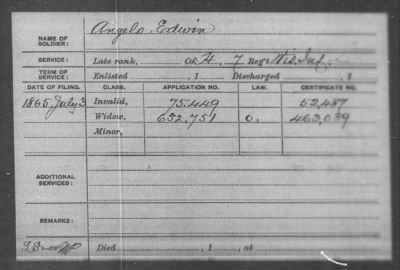 NAME OF SOLDIER: Angelo, Edwin
SERVICE: Late rank, Co. H, 7 Reg't Wis. Inf.
TERM OF SERVICE: Enlisted , 1 Discharged , 1
DATE OF FILING. CLASS. APPLICATION NO. LAW. CERTIFICATE NO.
1865 July 3 Invalid, 75.449 52,487
Widow, 652,751 O. 463,039
Minor,
ADDITIONAL SERVICES:
REMARKS:
Died , 1 , at